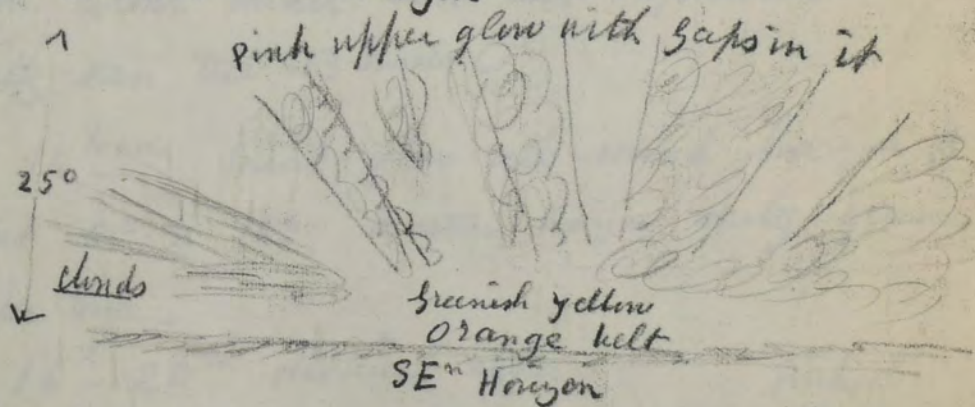 pink upper glow with gaps in it
25°
clouds
Greenish yellow
Orange belt
SEⁿ Horizon